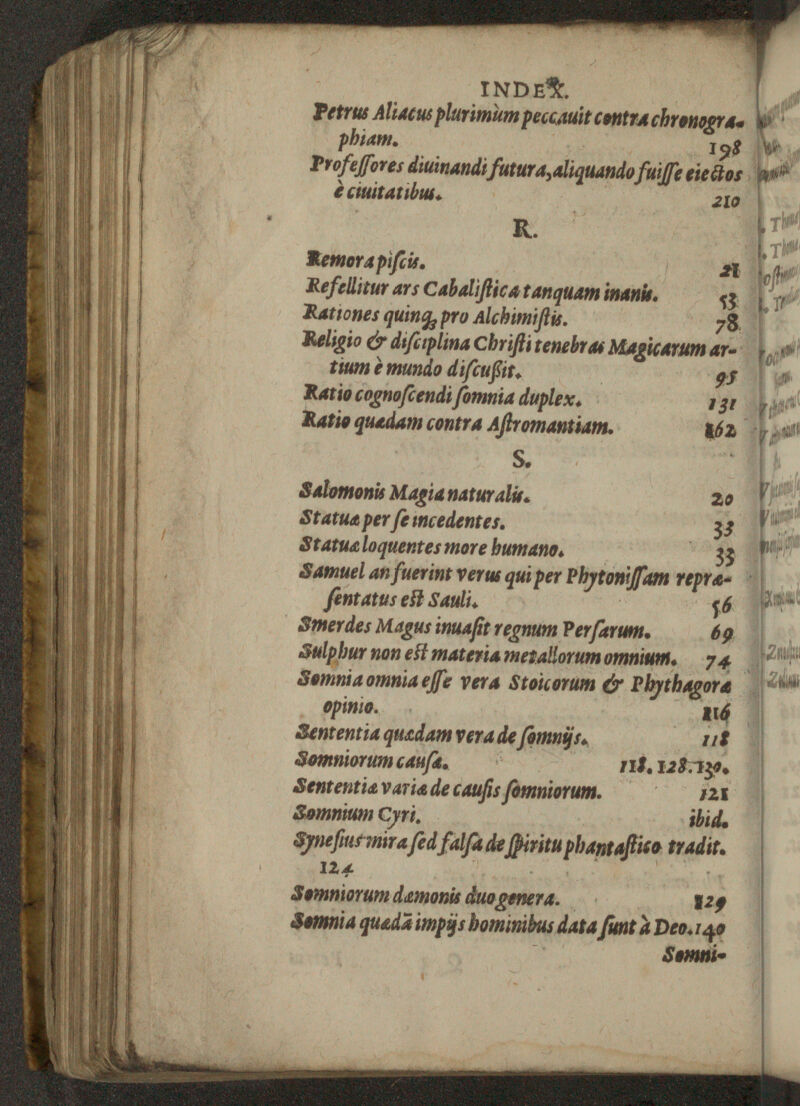 INDEX.
Petrus Aliacus plurimùm peccauit contra chronogra-
phiam. 198
Profeſſores diuinandi futura, aliquando fuiſſe eiectos
è ciuitatibus. 210
R.
Remora piſcis. 21
Refellitur ars Cabaliſtica tanquam inanis. 53
Rationes quinq; pro Alchimiſtis. 78.
Religio & diſciplina Chriſti tenebras Magicarum ar-
tium è mundo diſcuſſit. 95
Ratio cognoſcendi ſomnia duplex. 131
Ratio quædam contra Aſtromantiam. 162
S.
Salomonis Magia naturalis. 20
Statuæ per ſe incedentes. 33
Statuæ loquentes more humano. 33
Samuel an fuerint verus qui per Phytoniſſam repræ-
ſentatus eſt Sauli. 56
Smerdes Magus inuaſit regnum Perſarum. 69
Sulphur non eſt materia metallorum omnium. 74
Somnia omnia eſſe vera Stoicorum & Phythagoræ
opinio. 116
Sententia quædam vera de ſomnijs. 118
Somniorum cauſæ. 118. 128. 130.
Sententiæ variæ de cauſis ſomniorum. 121
Somnium Cyri. ibid.
Syneſius mira ſed falſa de ſpiritu phantaſtico tradit.
124
Somniorum dæmonis duo genera. 129
Somnia quædã impijs hominibus data ſunt à Deo. 140
Somni-